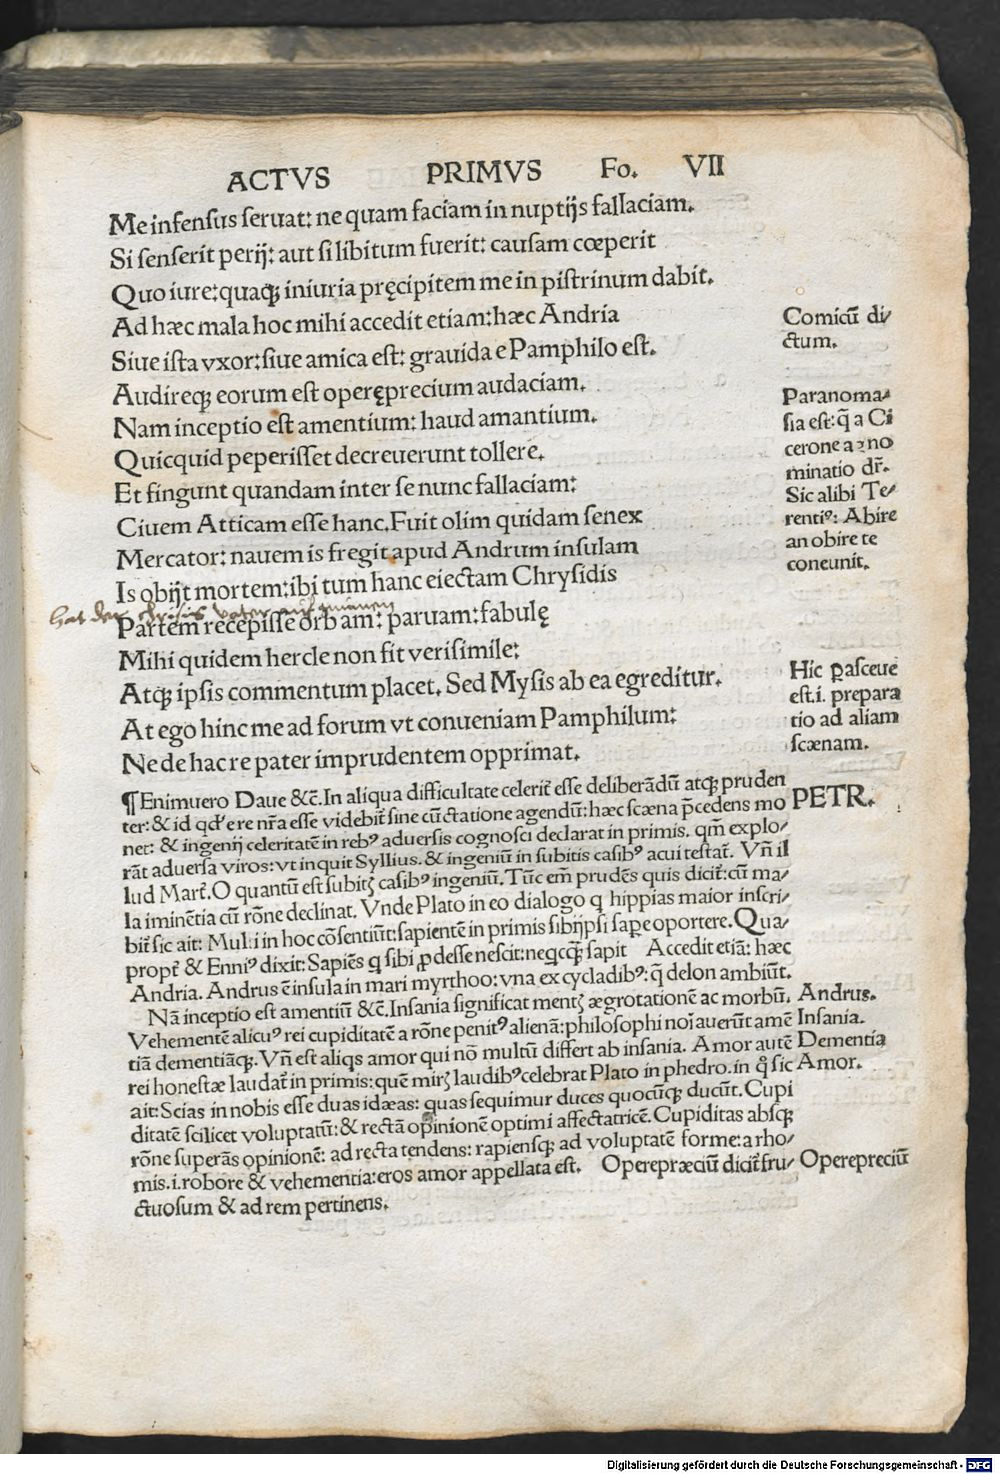 ACTVS PRIMVS Fo. VII
Me infensus seruat: ne quam faciam in nuptijs fallaciam.
Si senserit perij: aut si libitum fuerit: causam cœperit
Quo iure: quaqꝫ iniuria pręcipitem me in pistrinum dabit.
Ad hæc mala hoc mihi accedit etiam: hæc Andria
Siue ista vxor: siue amica est: grauida e Pamphilo est.
Audireqꝫ eorum est operęprecium audaciam.
Nam inceptio est amentium: haud amantium.
Quicquid peperisset decreuerunt tollere.
Et fingunt quandam inter se nunc fallaciam:
Ciuem Atticam esse hanc. Fuit olim quidam senex
Mercator: nauem is fregit apud Andrum insulam
Is obijt mortem: ibi tum hanc eiectam Chrysidis
hat den chrisis vater
Partem recepisse orbam: paruam: fabulę
Mihi quidem hercle non fit verisimile:
Atqꝫ ipsis commentum placet. Sed Mysis ab ea egreditur.
At ego hinc me ad forum vt conueniam Pamphilum:
Ne de hac re pater imprudentem opprimat.
Comicū di/
ctum.
Paranoma/
sia est: q̄ a Ci
cerone a ꝛno
minatio dr̄.
Sic alibi Te/
rentiꝰ: Abire
an obire te
coneunit.
Hic ꝑasceue
est .i. prepara
tio ad aliam
scænam.
¶ Enimuero Daue &c̄. In aliqua difficultate celerit̄ esse deliberādū atqꝫ pruden
ter: & id qd' ere nr̄a esse videbit̄ sine cūctatione agendū: hæc scæna p̄cedens mo
net: & ingenij celeritatē in rebꝰ aduersis cognosci declarat in primis. qm̄ explo/
rāt aduersa viros: vt inquit Syllius. & ingeniū in subitis casibꝰ acui testat̄. Vn̄ il
lud Mart̄. O quantū est subitꝭ casibꝰ ingeniū. Tūc em̄ prudēs quis dicit̄: cū ma/
la iminētia cū rōne declinat. Vnde Plato in eo dialogo q hippias maior inscri/
bit̄ sic ait: Multi in hoc cōsentiūt: sapientē in primis sibijpsi saꝑe oportere. Qua/
propt̄ & Enniꝰ dixit: Sapiēs q sibi ꝓdesse nescit: neqcqꝫ sapit Accedit etiā: hæc
Andria. Andrus ē insula in mari myrthoo: vna ex cycladibꝰ: q̄ delon ambiūt.
Nā inceptio est amentiū &c̄. Insania significat mentꝭ ægrotationē ac morbū.
Vehementē alicuꝰ rei cupiditatē a rōne penitꝰ alienā: philosophi noīauerūt amē
tiā dementiāqꝫ. Vn̄ est aliqs amor qui nō multū differt ab insania. Amor autē
rei honestæ laudat̄ in primis: quē mirꝭ laudibꝰ celebrat Plato in phedro. in q̊ sic
ait: Scias in nobis esse duas idæas: quas sequimur duces quocūqꝫ ducūt. Cupi
ditatē scilicet voluptatū: & rectā opinionē optimi affectatricē. Cupiditas absqꝫ
rōne superās opinionē: ad recta tendens: rapiensqꝫ ad voluptatē forme: a rho/
mis .i. robore & vehementia: eros amor appellata est. Operepræciū dicit̄ fru/
ctuosum & ad rem pertinens.
PETR.
Andrus.
Insania.
Dementia
Amor.
Operepreciū
Digitalisierung gefördert durch die Deutsche Forschungsgemeinschaft - DFG